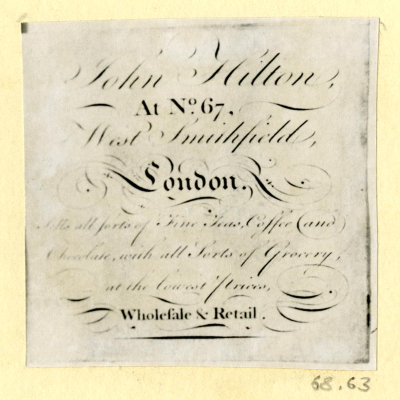 John Hilton,
At No. 67,
West Smithfield,
London.
Sells all sorts of Fine Teas, Coffee (and)
Chocolate, with all Sorts of Grocery,
at the lowest Prices,
Wholesale & Retail.
68.63